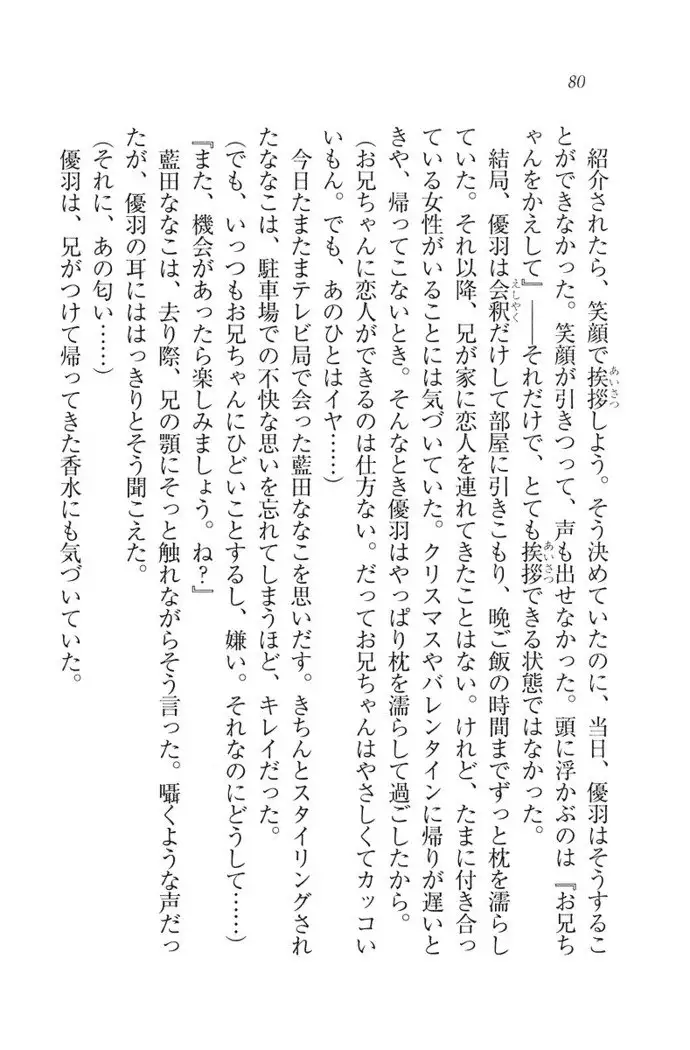 80
紹介されたら、笑顔で挨拶しよう。そう決めていたのに、当日、優羽はそうするこ
とができなかった。笑顔が引きつって、声も出せなかった。頭に浮かぶのは『お兄ち
ゃんをかえして』――それだけで、とても挨拶できる状態ではなかった。
結局、優羽は会釈だけして部屋に引きこもり、晩ご飯の時間までずっと枕を濡らし
ていた。それ以降、兄が家に恋人を連れてきたことはない。けれど、たまに付き合っ
ている女性がいることには気づいていた。クリスマスやバレンタインに帰りが遅いと
きや、帰ってこないとき。そんなとき優羽はやっぱり枕を濡らして過ごしたから。
(お兄ちゃんに恋人ができるのは仕方ない。だってお兄ちゃんはやさしくてカッコい
いもん。でも、あのひとはイヤ……)
今日たまたまテレビ局で会った藍田ななこを思いだす。きちんとスタイリングされ
たななこは、駐車場での不快な思いを忘れてしまうほど、キレイだった。
(でも、いっつもお兄ちゃんにひどいことするし、嫌い。それなのにどうして……)
『また、機会があったら楽しみましょう。ね?』
藍田ななこは、去り際、兄の顎にそっと触れながらそう言った。囁くような声だっ
たが、優羽の耳にははっきりとそう聞こえた。
(それに、あの匂い……)
優羽は、兄がつけて帰ってきた香水にも気づいていた。
あいさつ
あいさつ
えしやく